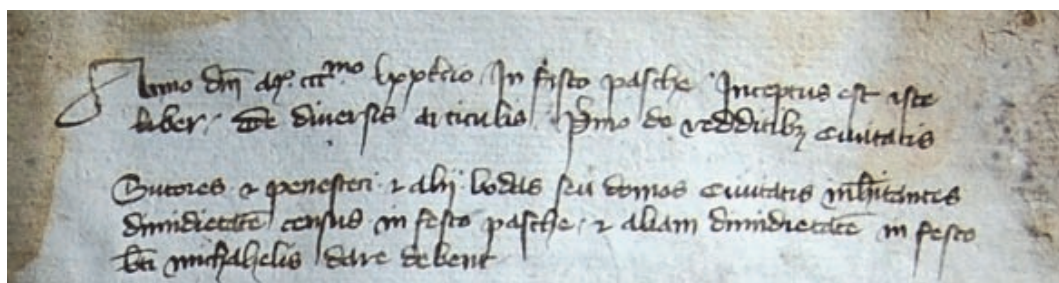 Anno dm̄ Mº. ccc^mo lxxt̄cio In festo pasche Inceptus est iste
liber. De diversis articulis P̄mo de redditibꝫ Ciuitatis
Sutores ⁊ penestici ⁊ alij bodas seu domos Ciuitatis inh̄itantes
dimidietatē census in festo pasche. ⁊ aliam dimidietatē in festo
b̄ti michahelis dare debent